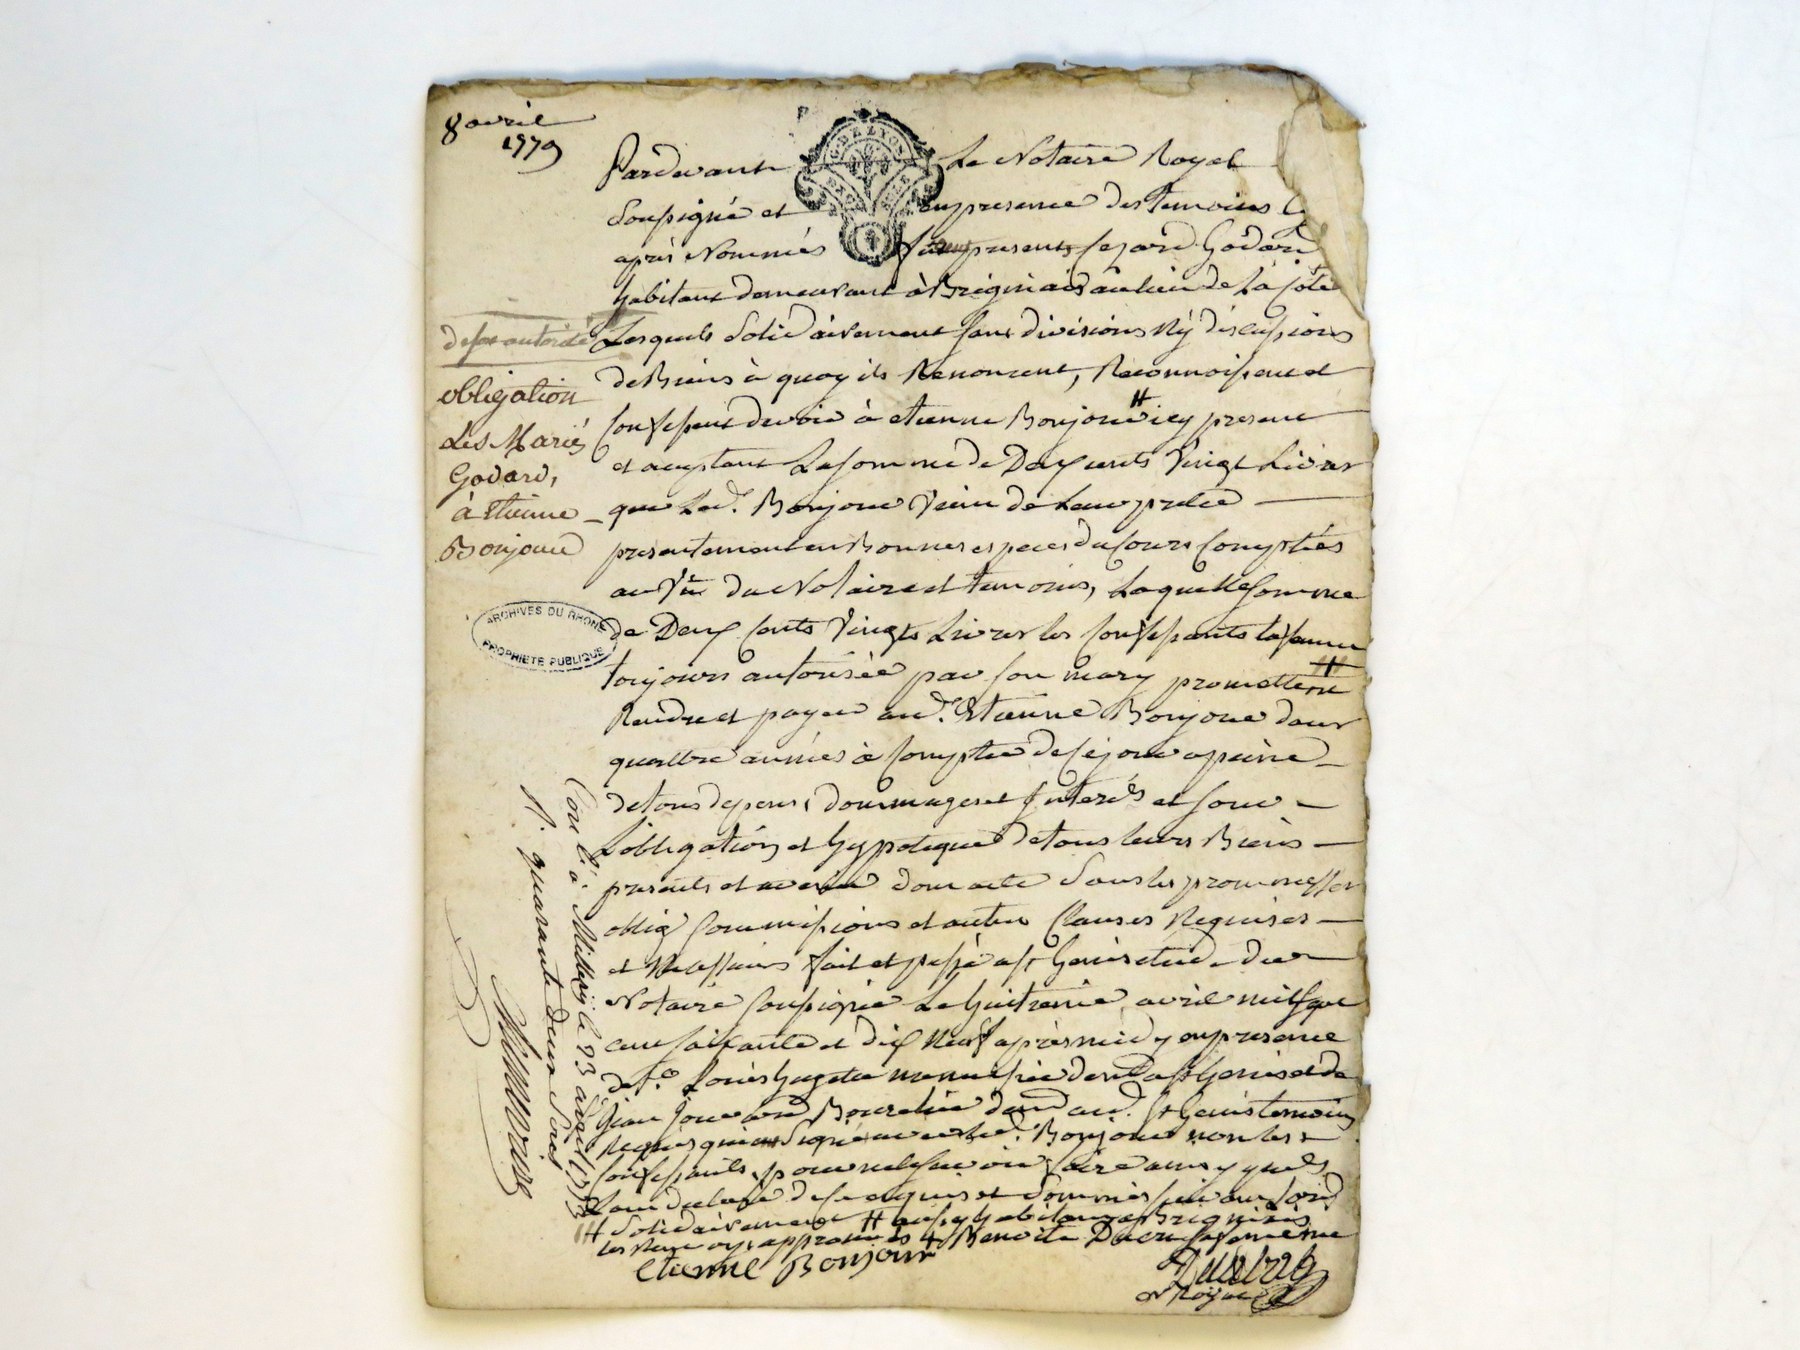 8 avril
1779
G. DE LYON
Pardevant Le Notaire Royal
Soussigné et en presence des temoins
après Nommés furent presents Cezard Godard
habitant demeurant à Brignais au lieu de La Côte
de son autorité
Lesquels Solidairement sans divisions Ny discussions
de Biens à quoy ils Renoncent, Reconnoissent et
Confessent devoir à etienne Bonjour # icy present
et acceptant La somme de Deux cents Vingt Livres
que Led. Bonjour Vient de Leur prêter
presentement en Bonnes especes du Cours Comptées
au Vû du Notaire et temoins, Laquelle somme
de Deux Cents Vingts Livres les Confessants la femme
toujours autorisée par son mary promettent #
Rendre et payer aud. Etienne Bonjour dans
quattre années à Compter de Ce jour a peine
de tous depens, dommages et Interés et sous
L'obligation et hypoteque de tous leurs Biens
presents et avenir dont acte Sous les promesses
oblig Soumissions et autres Clauses Requises
et Necessaires fait et passé à St Genis etude du
Notaire soussigné Le huitieme avril mil sept
cent soixante et dix Neuf après midy en presence
de Sr. Louis menuisier demt à St Genis et de
Jean Jouvard Bourelier demt aud. St Genis temoins
Requis qui ont signé avec led. Bonjour non les
Confessants pour ne savoir faire ainsy qu'ils
L'ont declaré de ce enquis et sommés
# Solidairement # aussy habitant à Brignais
les Renvoys approuvés # Benoite sa femme
etienne Bonjour
N Royal
obligation
des Mariés
Godard,
à Etienne
Bonjour
ARCHIVES DU RHONE
PROPRIETE PUBLIQUE
Con lé à Millery le 23 avril 1779
R. quarante deux Sols